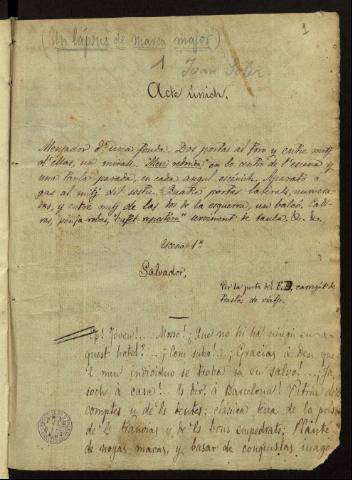 (Un lápsus de marca major)
1
1 Joan Soler
Acte únich.
Menjador d'una fonda. Dos portas al foro y entre mitj
d'ellas, un mirall. Mesa redonda en lo centro de l'escena y
una taula parada, en cada angul escénich. Aparato a
gas al mitj del sostre. Quatre portas laterals, numera-
das, y entre mitj de las dos de la esquerra, un balcó. Cadi-
ras, penja-robas, "buffet repartón" serviment de taula, &. &.
Escena 1ª
Salvador,
Per la porta del F. D. carregat de
trastos de viatje.
Ep! Joven!... Mosso! ¡Que no hi ha ningú en a-
quest hotel?... ¡Com subo!... ¡Gracias á Deu que
'l meu individuo se troba sa en salvo!... ¡Ja
soch á casa! Es dir, á Barcelona! Patria de
comptes y de
de 'l Tranvias y de 'ls bons empedrats; Planter
de noyas macas, y basar de conquistas imagi-